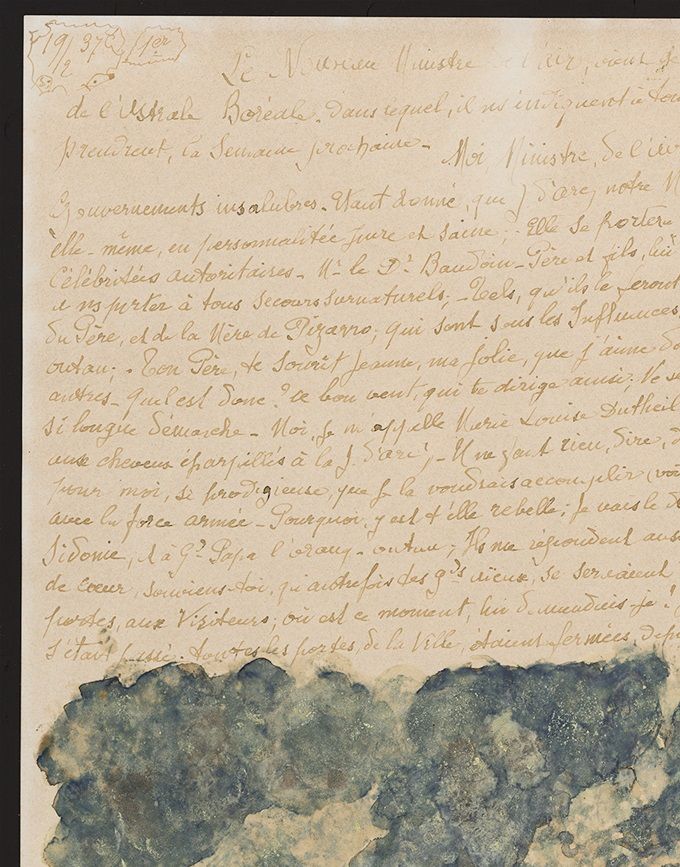 19 37 1er
2
Le Nouveau Ministre de l'air, vient de
de l'Astrale Boréale. dans lequel, il ns indiqueront à tou
prendront, la Semaine prochaine - Moi, Ministre, de l'air
Gouvernements insalubres. Etant donné, que J d'arc, notre
elle-même, en personnalitée pure et saine; - Elle se porter
Célébritées autoritaires - Mr le Dr Baudoin - Père et fils, lui
à tous secours surnaturels; - Tels, qu'ils le feront
du Père, et de la Mère de Pizarro, qui sont sous les Influences,
outan; - Ton Père, te sourit Jeanne, ma jolie, que j'aime
autres - quel est donc? ce bon vent, qui te dirige ainsi. Ne
si longue démarche - Moi, Je m'appelle Marie Louise Dutheil
aux cheveux éparpillés à la J. d'arc; - Il ne faut rien, dire,
pour moi, si prodigieuse, que Je la voudrais accomplir
avec la force armée - Pourquoi, y est t'elle rebelle; Je vais le
Sidonie, et à Gd Papa l'orang-outan; Ils me répondent
de cœur, souviens-toi, qu'autrefois des gds vieux, se servaient
portes, aux Visiteurs, où est ce moment, lui demandais-je?
s'était passé: toutes les portes, de la Ville, étaient fermées,